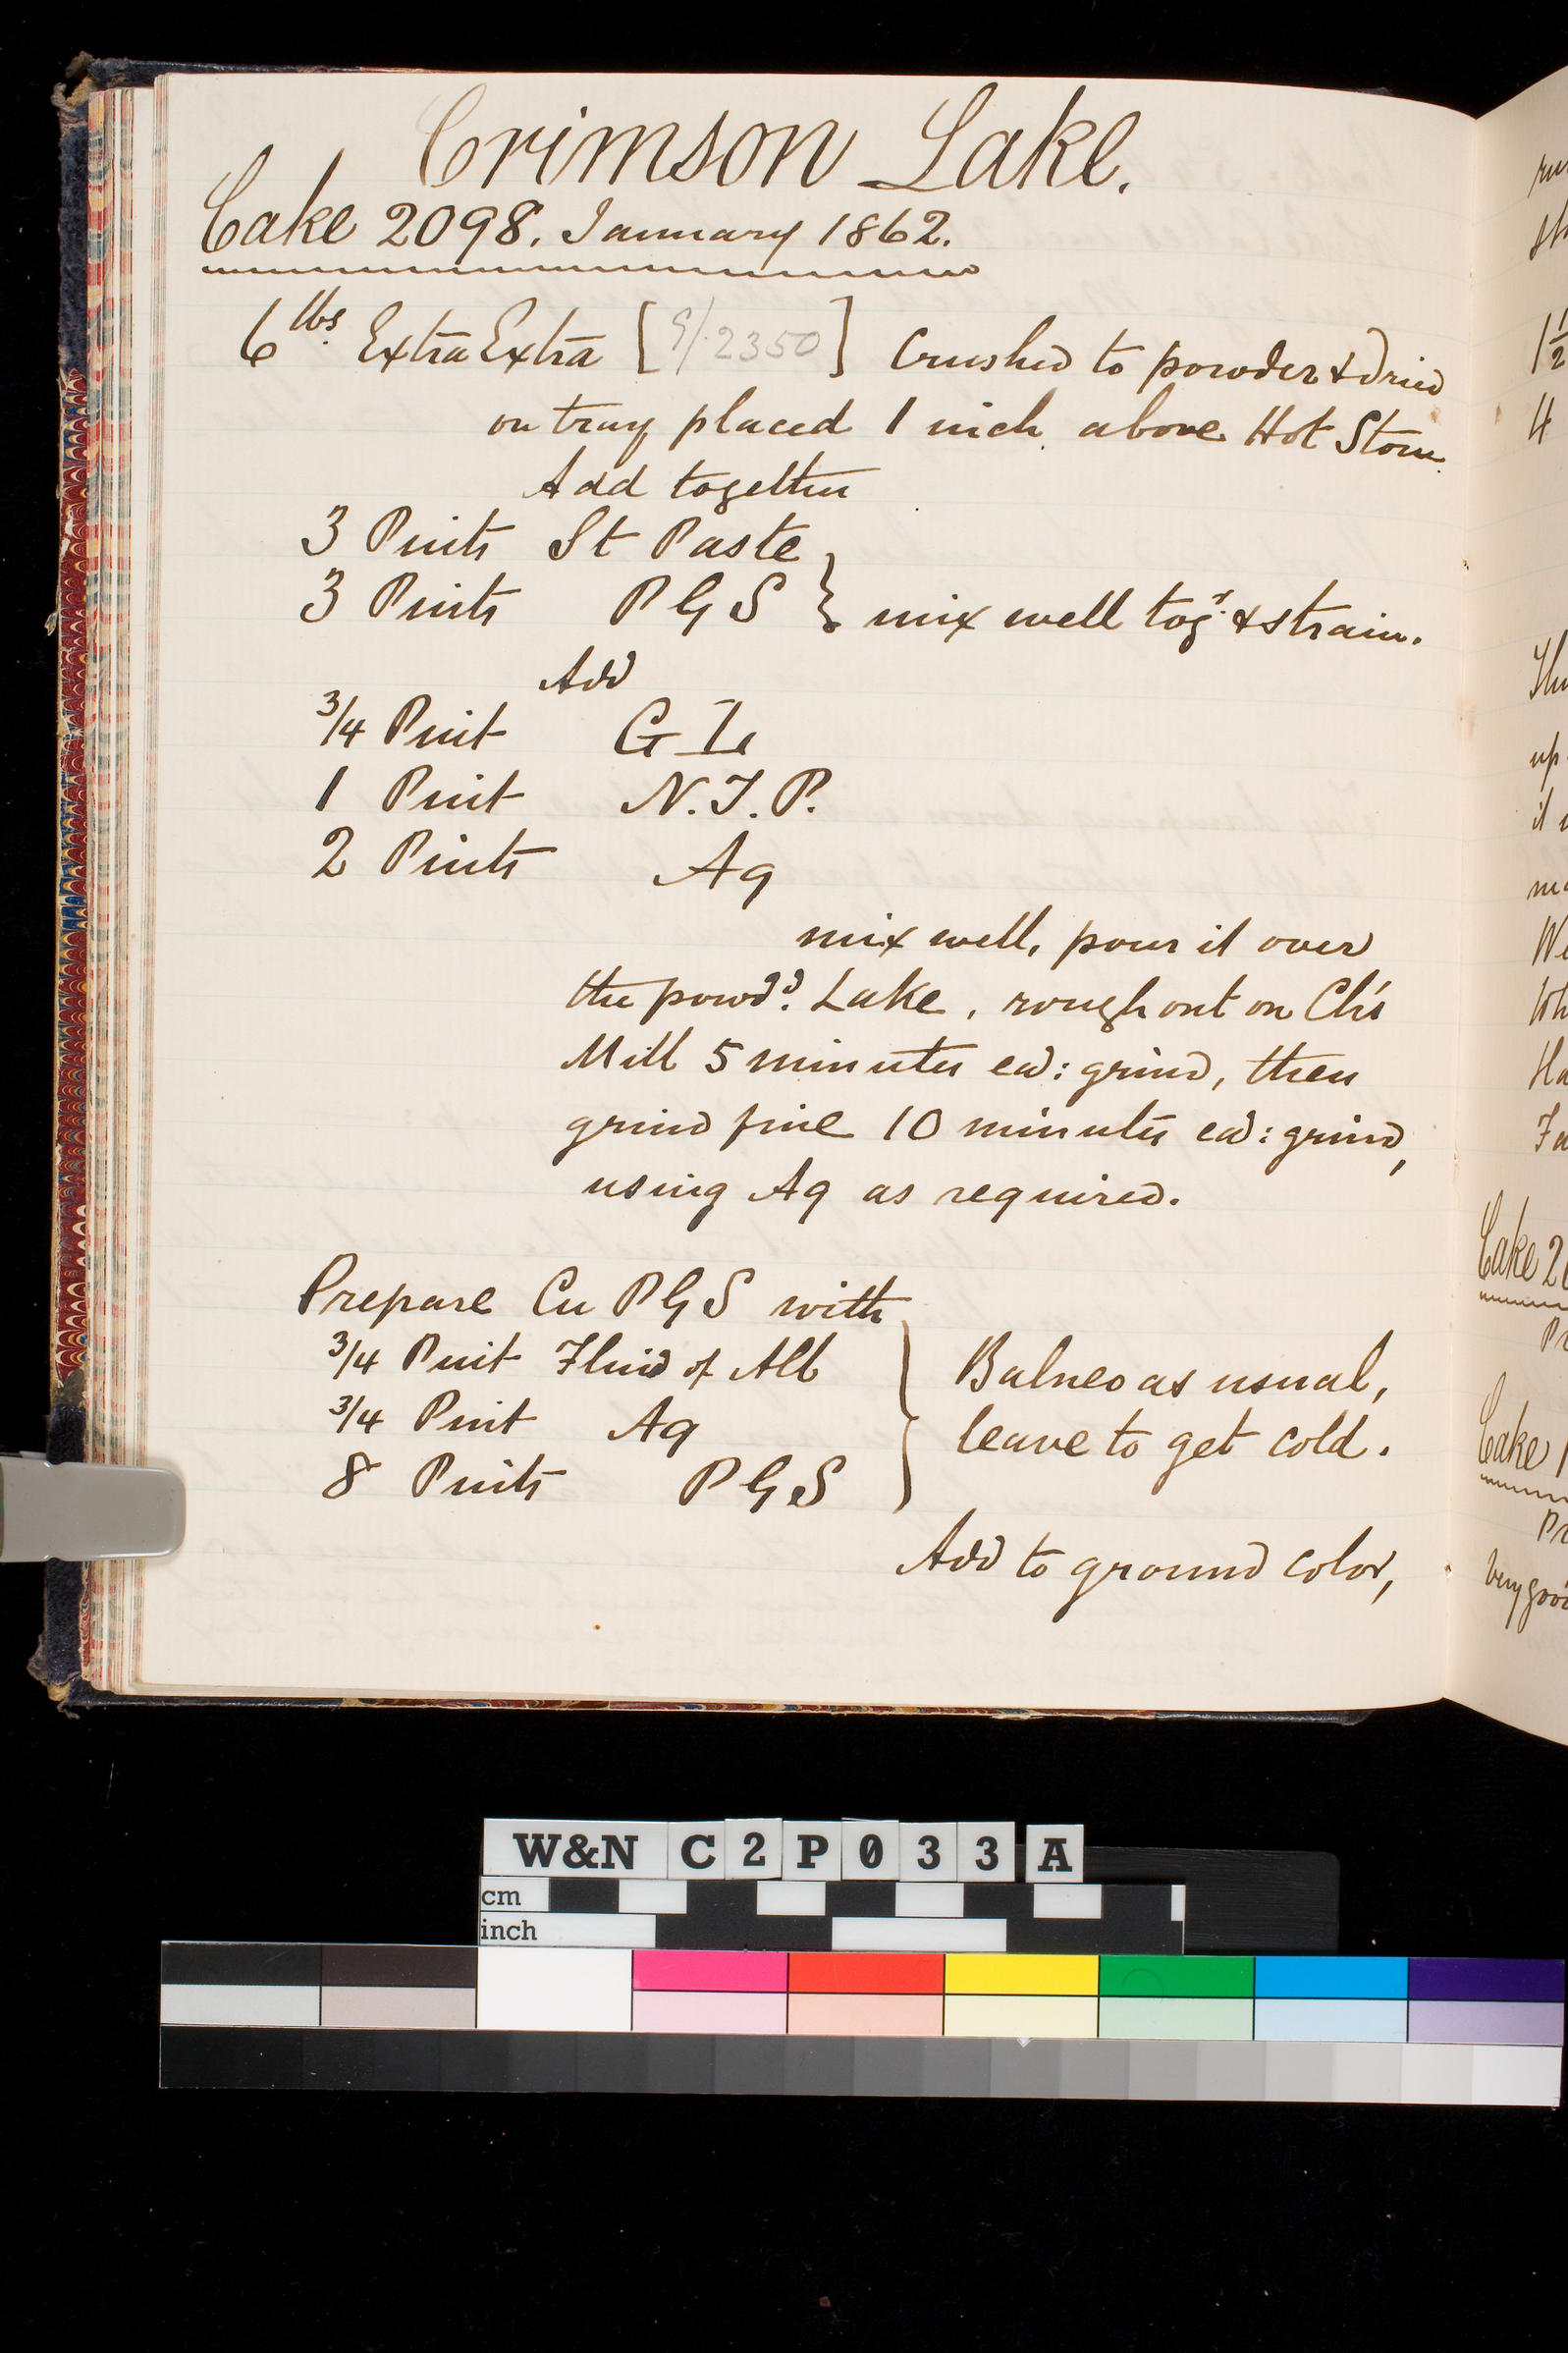 Crimson Lake.
Cake 2098. January 1862.
6 lbs. Extra Extra [9/2350] Crushed to powder & dried
on tray placed 1 inch above Hot Stove.
Add together
3 Pints St Paste
3 Pints P G S } mix well togr. & strain.
Add
3/4 Pint G L
1 Pint N.T.P.
2 Pints Aq
mix well, pour it over
the powdd. Lake, rough out on Ch's
Mill 5 minutes ea: grind, then
grind fine 10 minutes ea: grind,
using Aq as required.
Prepare Cu P G S with
3/4 Pint Fluid of Alb } Balneo as usual,
3/4 Pint Aq leave to get cold.
8 Pints P G S
Add to ground color,
1 1/2
4
up
Cake 2
Cake 1
W&N C2P033 A
cm
inch